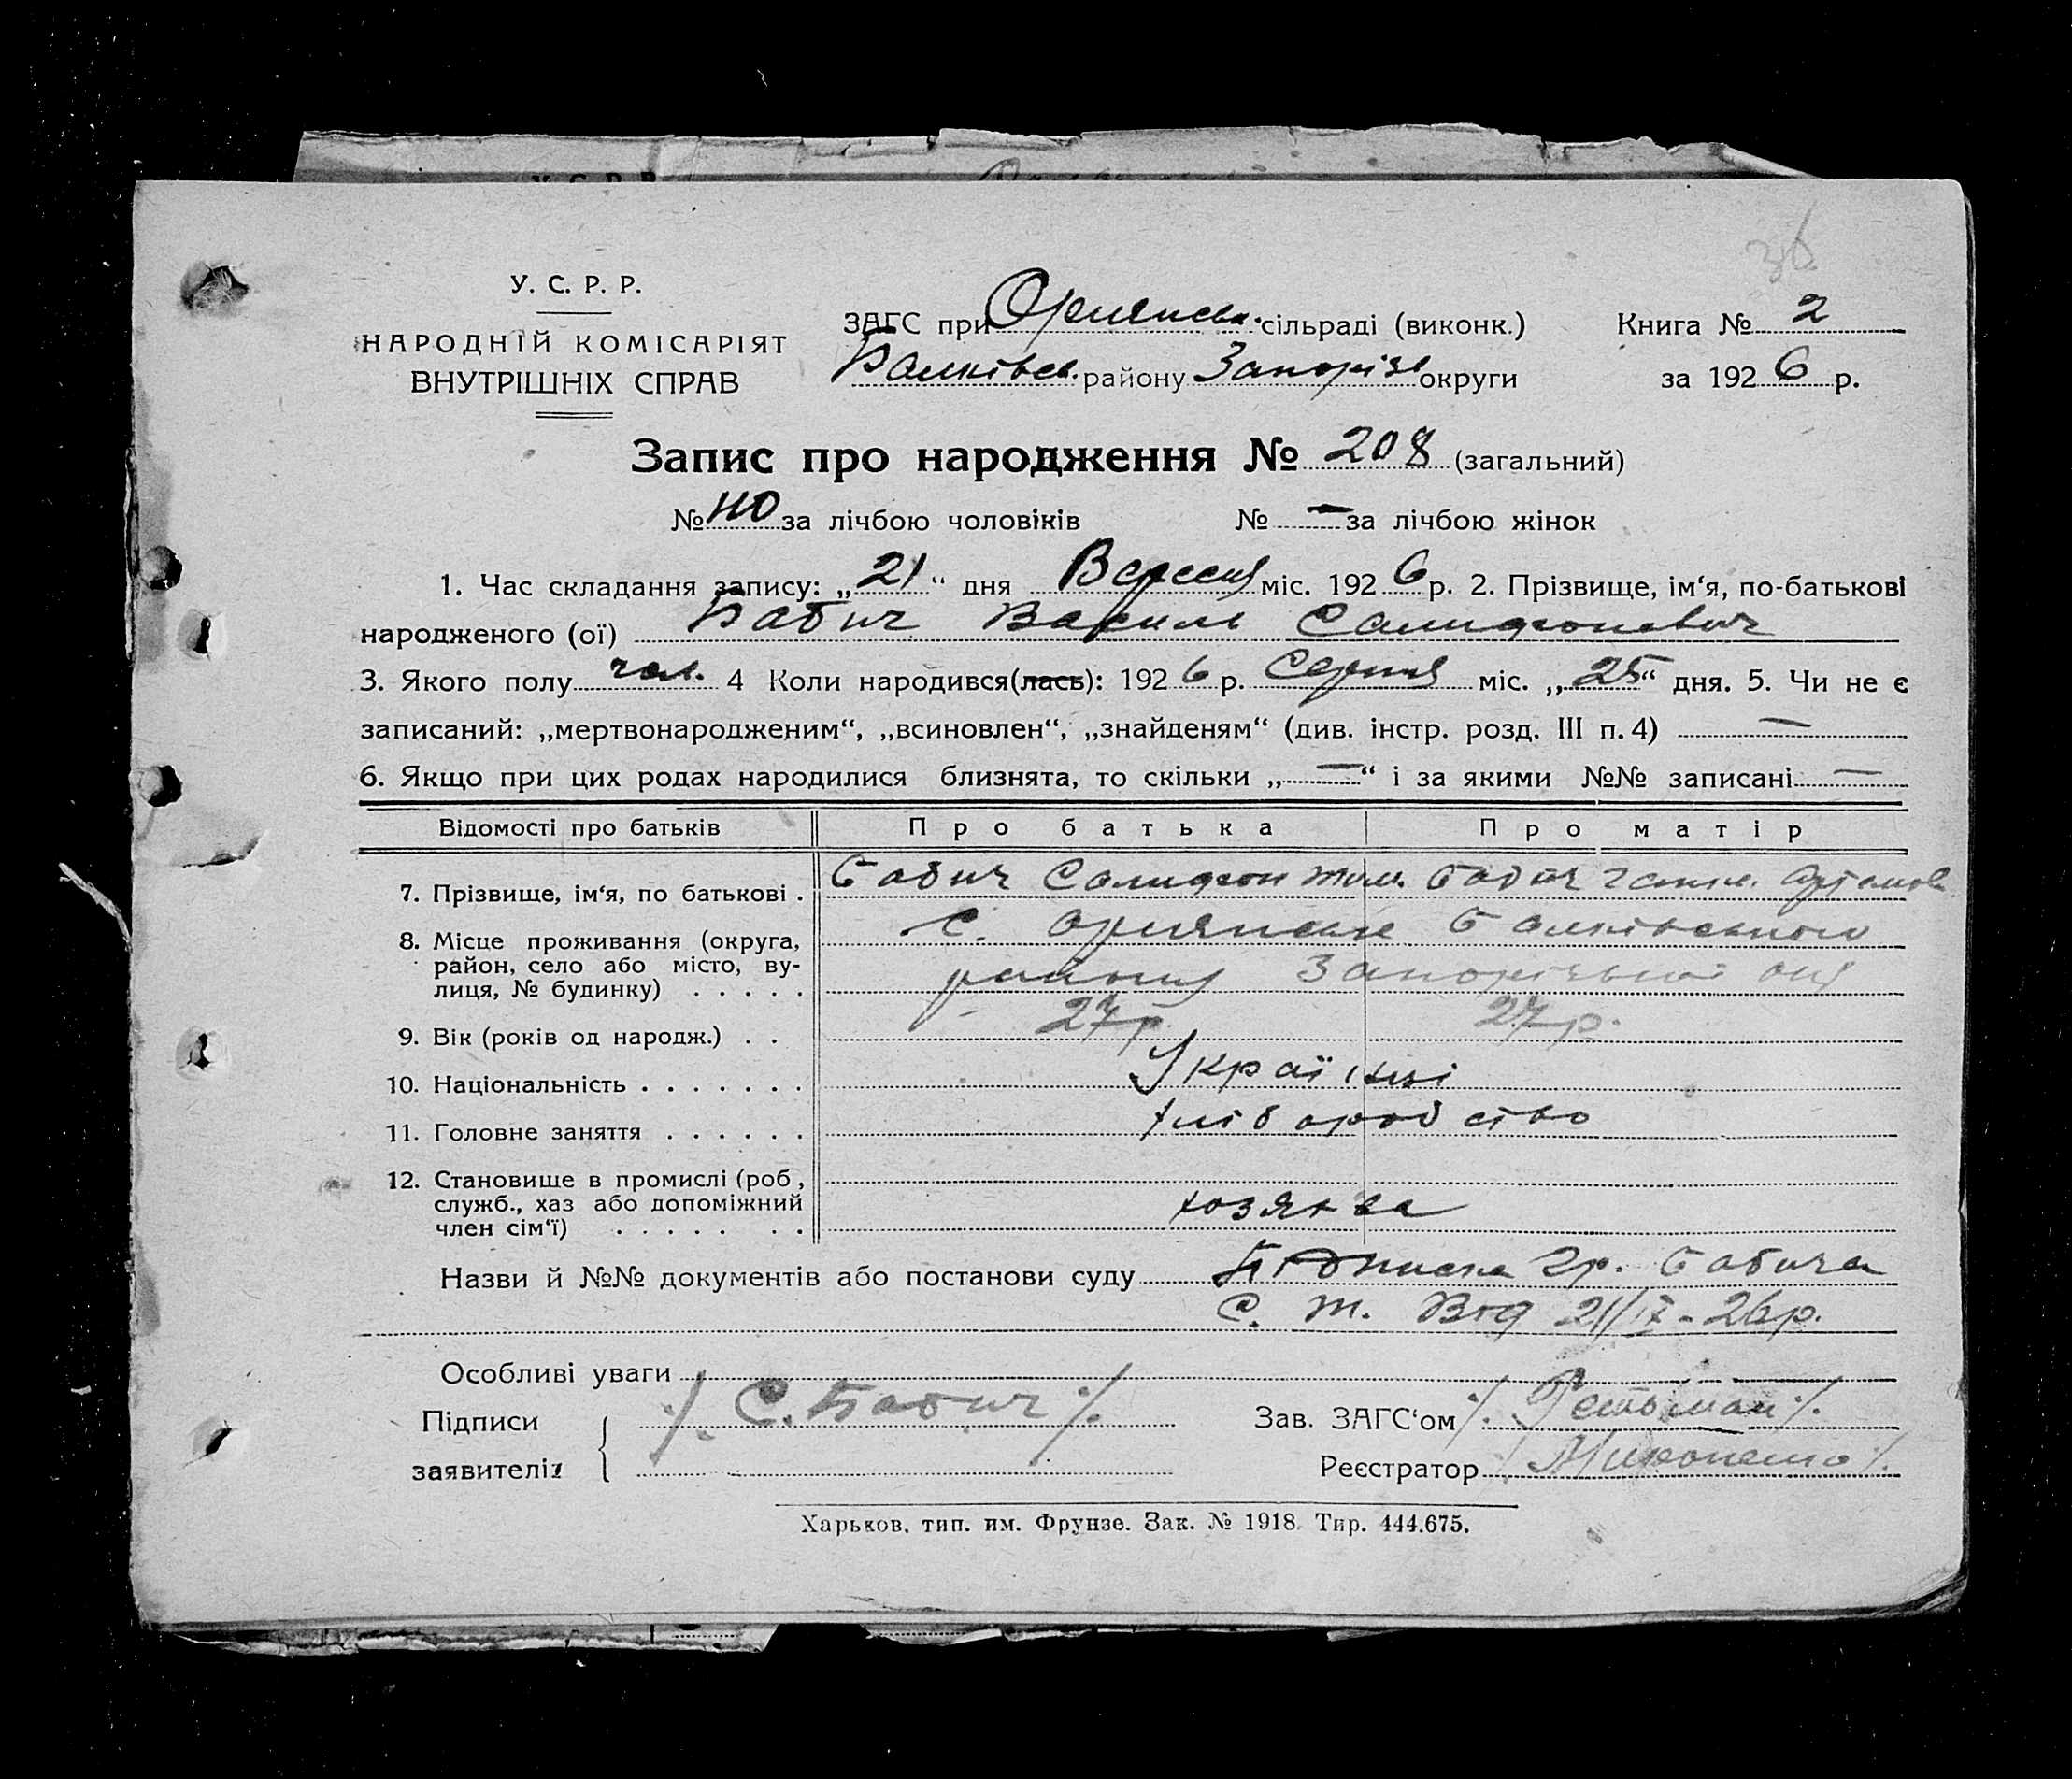 У. С. Р. Р.
НАРОДНІЙ КОМІСАРІЯТ
ВНУТРІШНІХ СПРАВ
ЗАГС при Орлянськ. сільраді (виконк.)
Балківск. району Запоріз округи
Книга № 2
за 1926 р.
Запис про народження № 208 (загальний)
№ 110 за лічбою чоловіків № — за лічбою жінок
1. Час складання запису: „21“ дня Вересня міс. 1926 р. 2. Прізвище, ім‘я, по-батькові
народженого (ої) Бабич Василь Самифонович
3. Якого полу чол. 4 Коли народився(лась): 1926 р. Серпня міс. „25“ дня. 5. Чи не є
записаний: „мертвонародженим“, „всиновлен“, „знайденям“ (див. інстр. розд. III п. 4) —
6. Якщо при цих родах народилися близнята, то скільки „—“ і за якими №№ записані —
Відомості про батьків Про батька Про матір
7. Прізвище, ім‘я, по батькові . Бабич Самифон Тим. Бабич Ганна Артемов
8. Місце проживання (округа, с. Орлянське Балківського
район, село або місто, ву-
лиця, № будинку) . . . . . району Запорізької окр
9. Вік (років од народж.) . . 27 р. 27 р.
10. Національність . . . . . . . Українці
11. Головне заняття . . . . . . хліборобство
12. Становище в промислі (роб,
служб., хаз або допоміжний
член сім‘ї) . . . . . . . хозяєва
Назви й №№ документів або постанови суду Підписка гр. Бабича
С. Т. Від 21/IX - 26 р.
Особливі уваги
Підписи /. С. Бабич /. Зав. ЗАГС‘ом /. Гетьман /.
заявителів Реєстратор / Мироненко /.
Харьков. тип. им. Фрунзе. Зак. № 1918. Тир. 444.675.